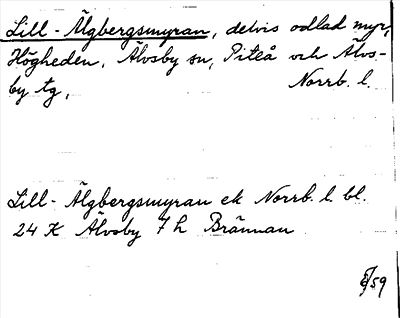 Lill-Älgbergsmyran, delvis odlad myr,
Högheden, Älvsby sn, Piteå och Älvs-
by tg, Norrb. l.
Lill-Älgbergsmyran ek Norrb. l. bl.
24 K Älvsby 7 h Brännan
/59